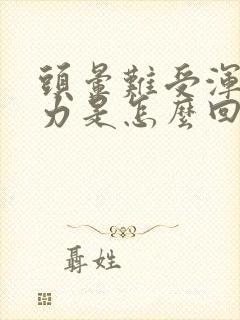 頭暈難受渾
力是怎麼回
聶姓